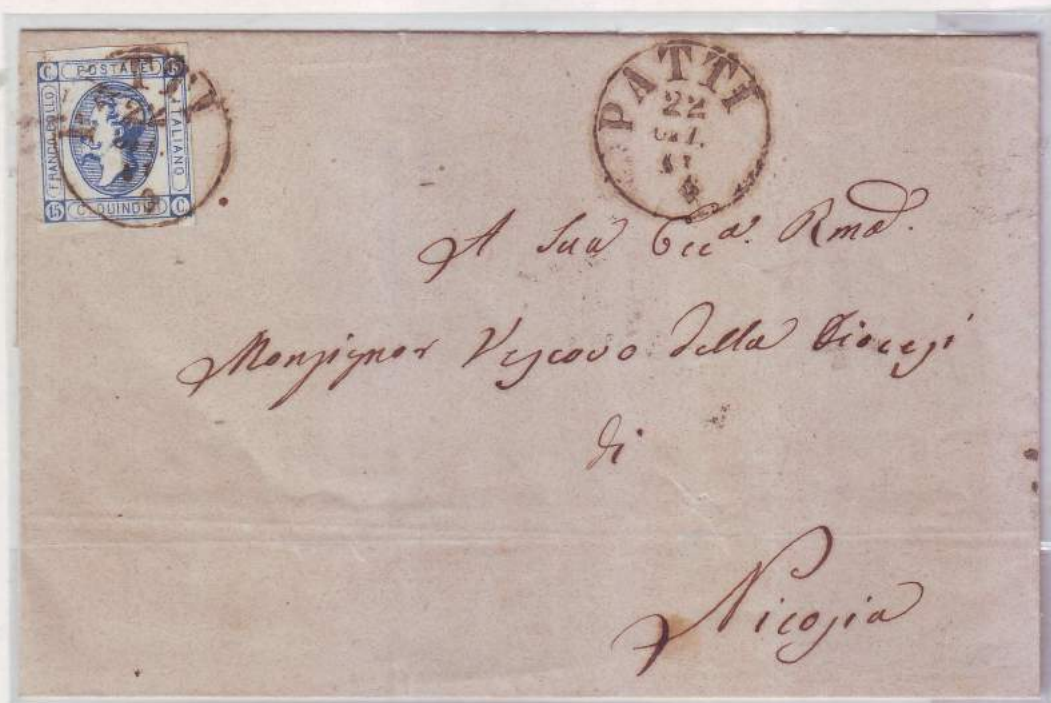 C POSTALE 15
FRANCO BOLLO
ITALIANO
15 C. QUINDICI C
PATTI
22
PATTI
22
A Sua Ecca. Rma.
Monsignor Vescovo della Diocesi
di
Nicosia